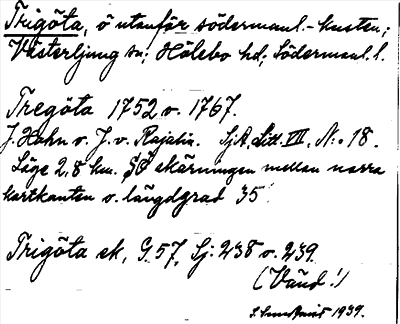 Trigöta, ö utanför södermanl.-kusten;
Västerljung sn; Hölebo hd; Södermanl. l.
Tregöta 1752 o. 1767.
J. Hahn o. J. v. Rajalin. SjA, Litt. VII, N:o 18.
Läge 2,8 km. SÖ skärningen mellan norra
kartkanten o. längdgrad 35'.
Trigöta ek, G. 57, Sj: 238 o. 239.
(Vänd!)
1939.